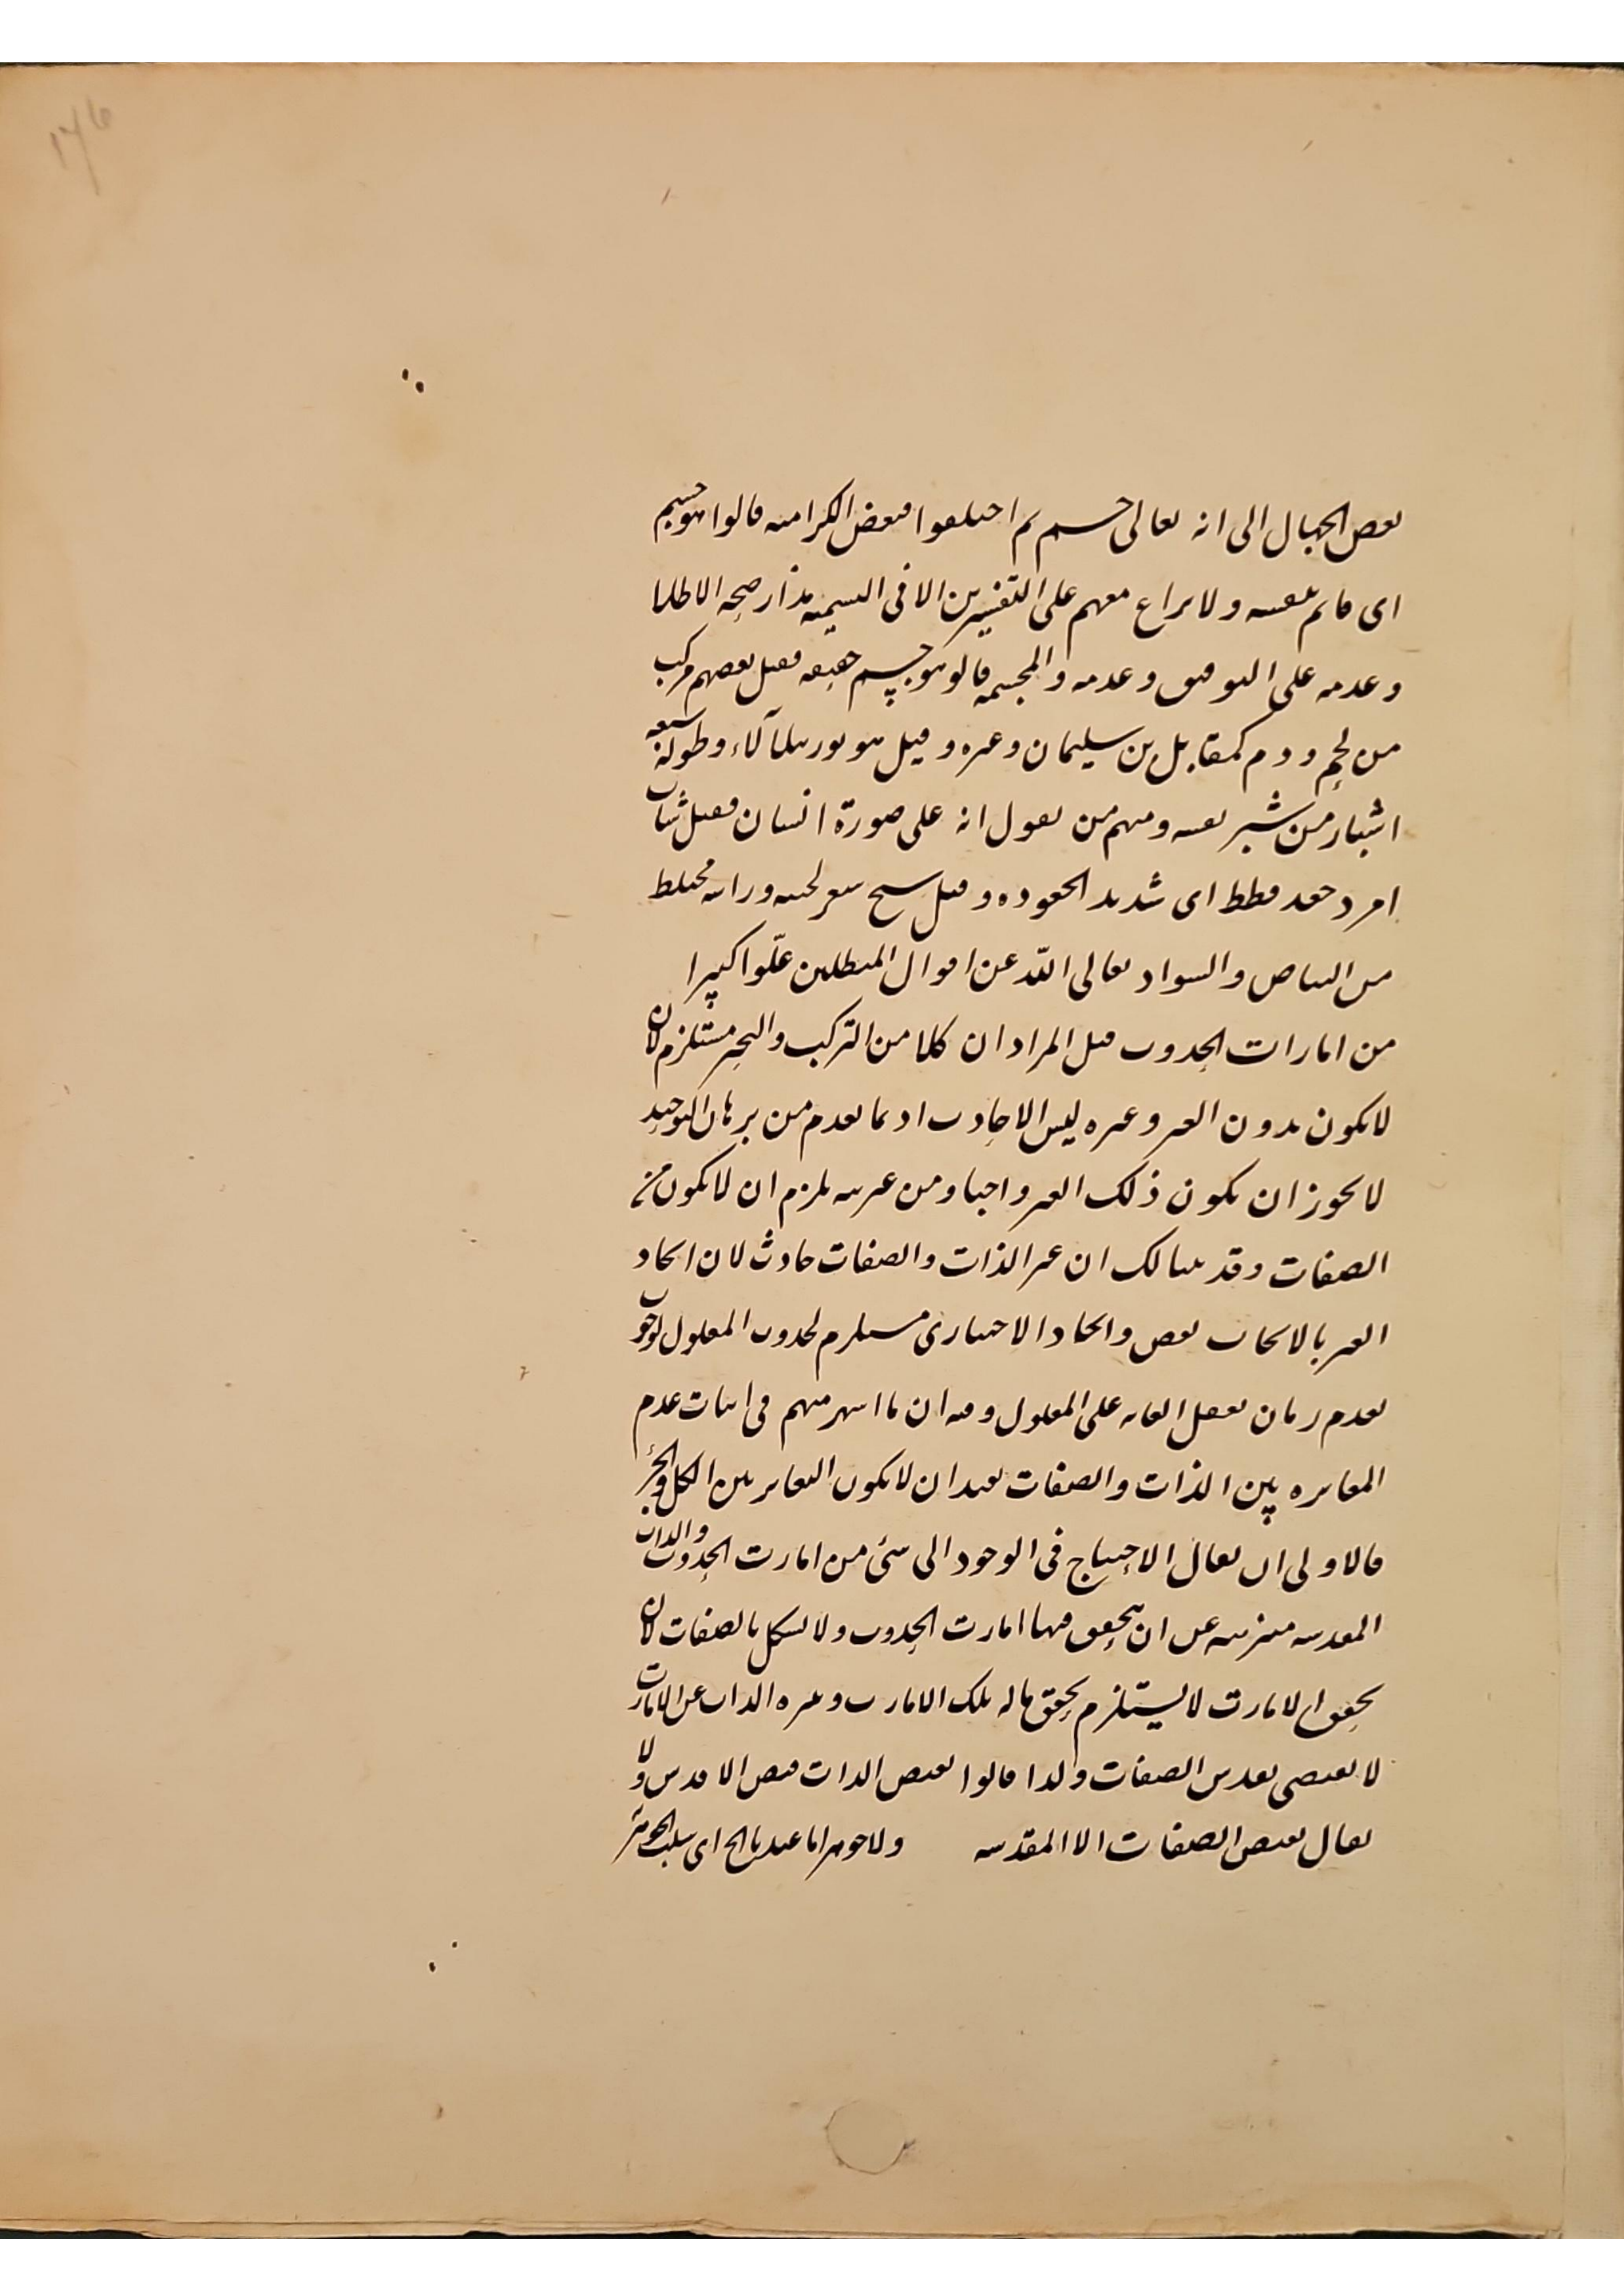 ١٧٦
بعض الجهال الى انه تعالى جسم ثم اختلفوا فبعض الكرامية قالوا هو جسم
اى قائم بنفسه ولا نزاع معهم على التفسيرين الا فى التسمية مدار صحة الاطلاق
وعدمه على التوقيف وعدمه والمجسمة قالوا هو جسم حقيقة فقيل بعضهم مركب
من لحم ودم كمقابل بن سليمان وغيره وقيل هو نور يتلألاء وطوله سبعة
اشبار من شبر نفسه ومنهم من يقول انه على صورة انسان فقيل شاب
امرد جعد قطط اى شديد الجعوده وقيل شيخ شعر لحيته وراسه مختلط
من البياض والسواد تعالى الله عن اقوال المبطلين علوا كبيرا
من امارات الحدوث قيل المراد ان كلا من التركيب والتحيز مستلزم لان
لا يكون بدون الغير وغيره ليس الا حادث اذ بما تقدم من برهان التوحيد
لا يجوز ان يكون ذلك الغير واجبا ومن غيريته يلزم ان لا يكون من
الصفات وقد بينا لك ان غير الذات والصفات حادث لان ايجاد
الغير بالايجاب نقص وايجاد الاختيارى مستلزم لحدوث المعلول لوجوب
تقدم زمان تعقل الغاية على المعلول وفيه ان ما اشهر منهم فى اثبات عدم
المغايره بين الذات والصفات يفيد ان لا يكون التغاير بين الكل والجزء
فالاولى ان يقال الاحتياج فى الوجود الى شئ من امارت الحدوث والذات
المقدسه منزهة عن ان يتحقق فيها امارت الحدوث ولا يشكل بالصفات لان
تحقق الامارت لا يستلزم تحقق ما له تلك الامارت وتنزه الذات عن الامارت
لا يقتضى تقدس الصفات ولذا قالوا بفيض الذات فيض الاقدس ولا
يقال بفيض الصفات الا المقدسه ولا جوهر اما عندنا الخ اى سلب الجوهر